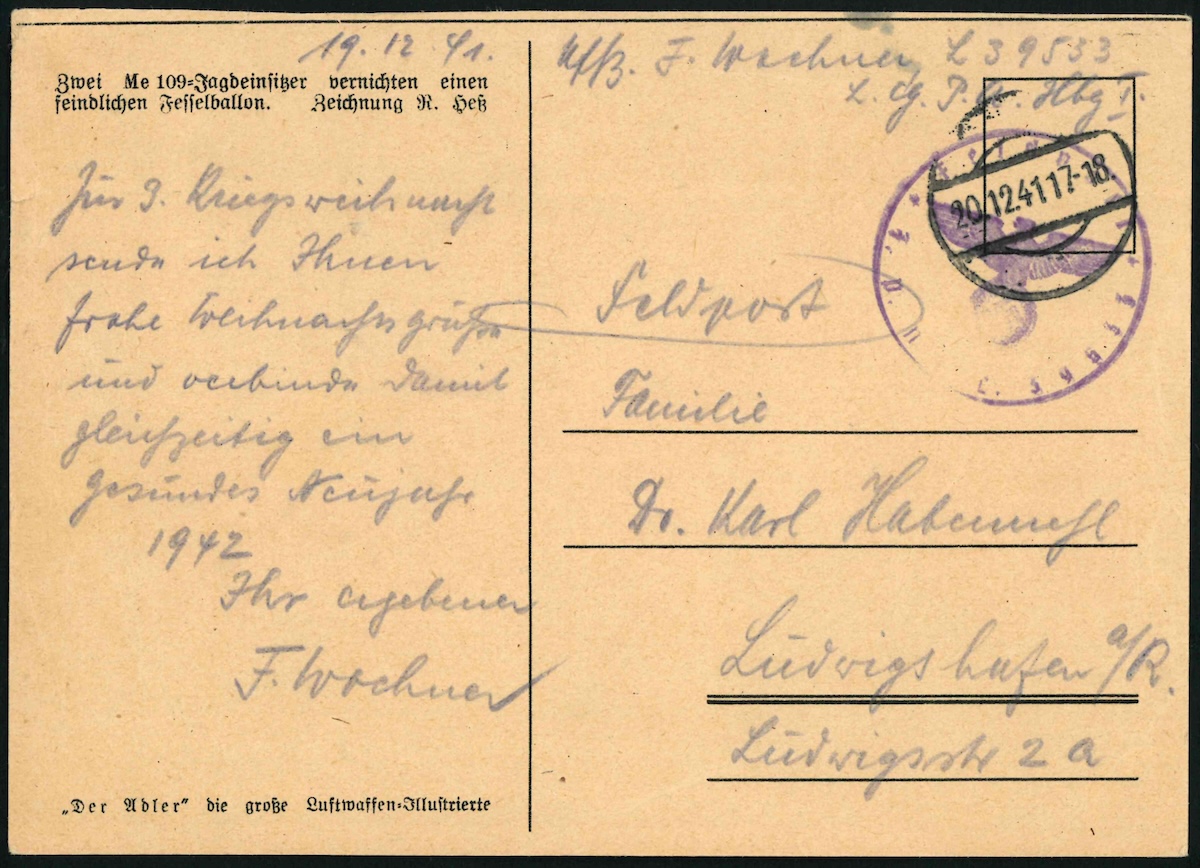 19.12.41.
Zwei Me 109=Jagdeinsitzer vernichten einen
feindlichen Fesselballon. Zeichnung R. Heß
Zur 3. Kriegsweihnacht
sende ich Ihnen
frohe Weihnachtsgrüße
und verbinde damit
gleichzeitig ein
gesundes Neujahr
1942
Ihr ergebener
F. Wochner
„Der Adler" die große Luftwaffen=Illustrierte
Uffz. F. Wochner, L 39533
L. g. P. A. Hbg 1.
20.12.41 17-18
Feldpost
Familie
Dr. Karl Habermehl
Ludwigshafen a/R.
Ludwigstr 2 a